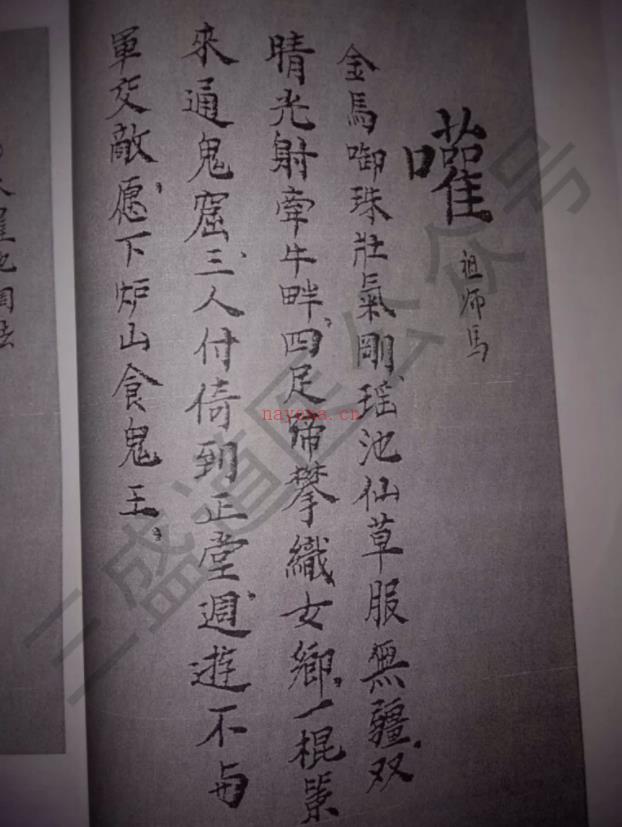 嚾
祖师馬
金馬啣珠壯氣剛瑶池仙草服無疆双
晴光射牵牛畔四足蹄攀織女鄉一棍
來通鬼窟三人付倚到正堂週遊不与
軍交敵愿下炉山食鬼王
三盛道医公众号
nayona.cn